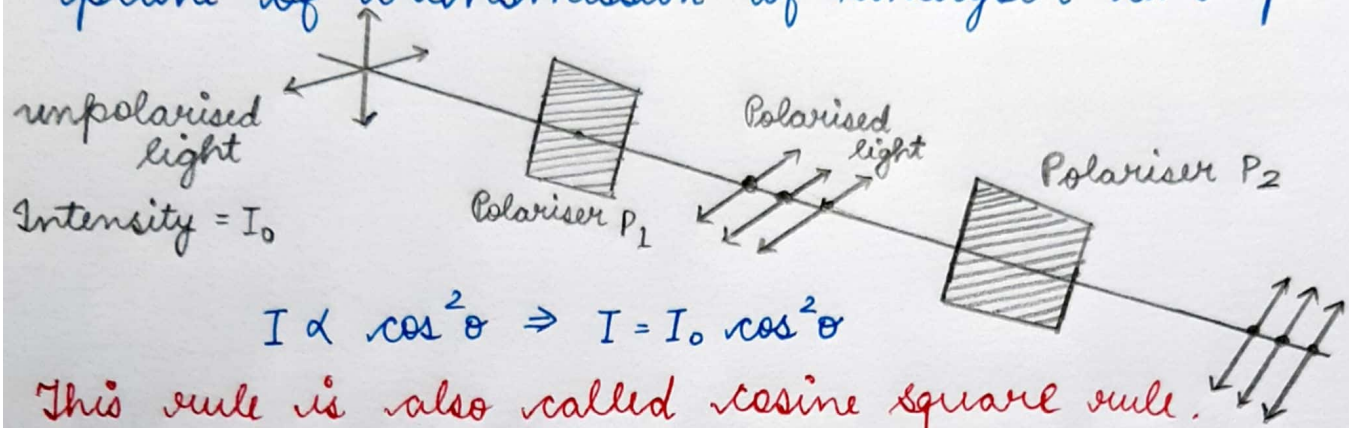 plane of transmission of
unpolarised
light
Intensity = I₀
Polariser P₁
Polarised
light
Polariser P₂
I ∝ cos²θ ⇒ I = I₀ cos²θ
This rule is also called cosine square rule.